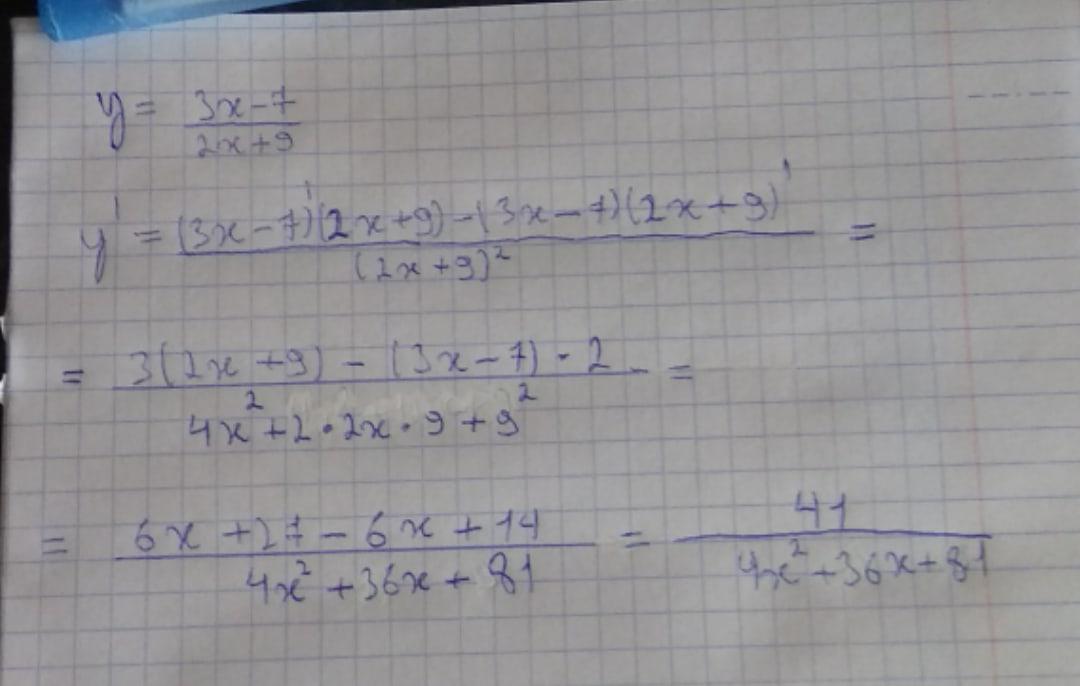 y = (3x-7)/(2x+9)
y' = ((3x-7)'(2x+9)-(3x-7)(2x+9)')/(2x+9)² =
= (3(2x+9)-(3x-7)·2)/(4x²+2·2x·9+9²) =
= (6x+27-6x+14)/(4x²+36x+81) = 41/(4x²+36x+81)